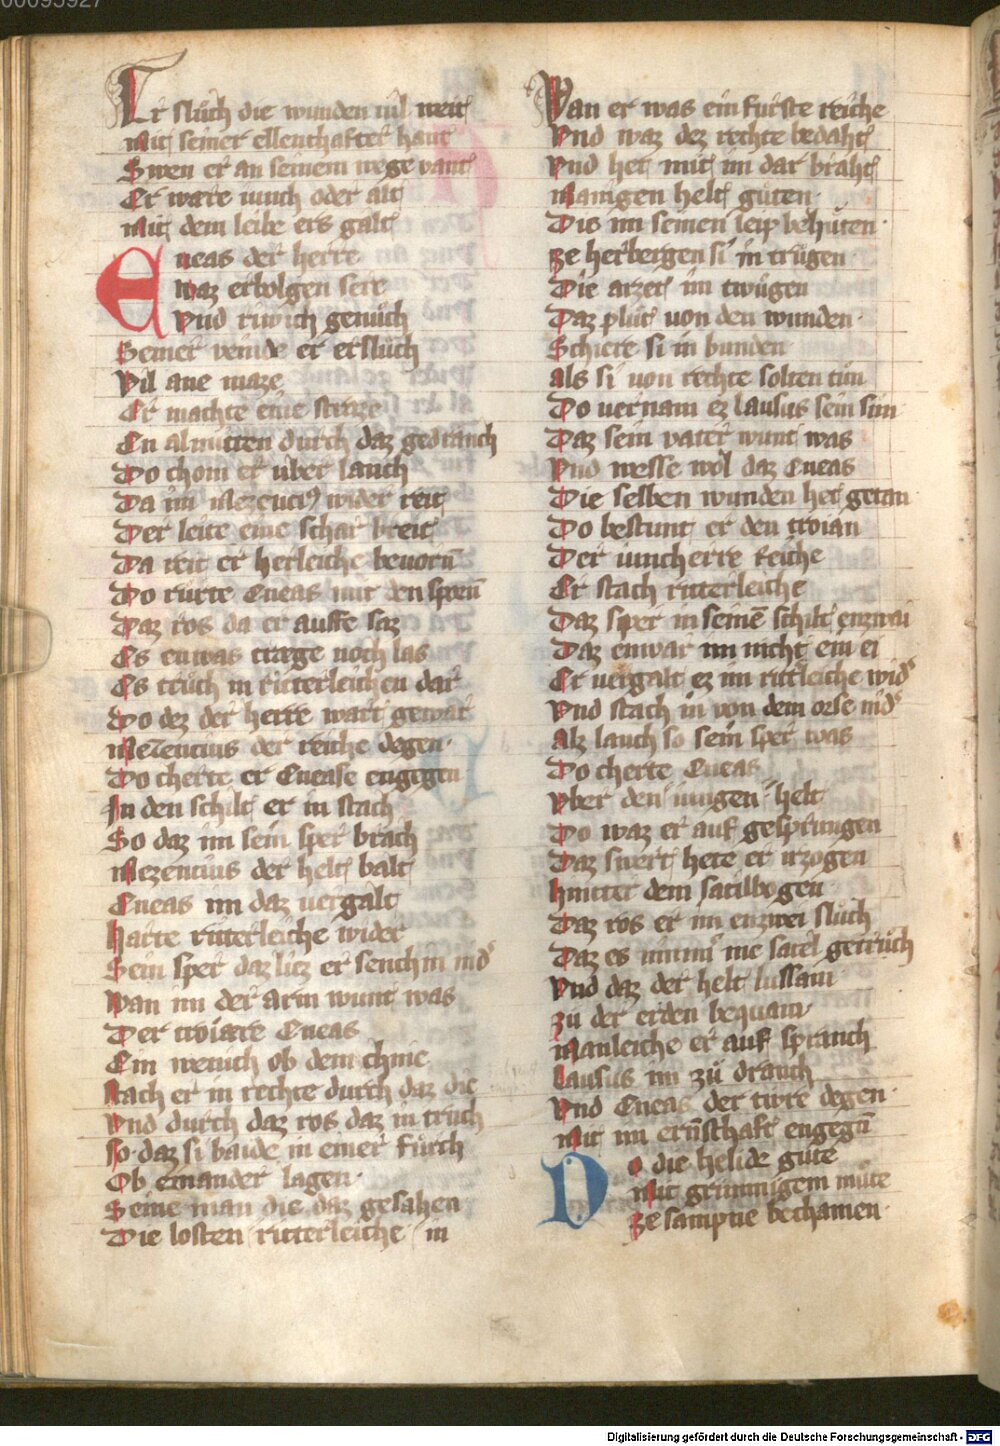 00095927
Er sluͦch die wunden vil weit
Mit seiner ellenthafter hant
Swen er an seinem wege vant
Er ware iunch oder alt
Mit dem leibe ers galt
Eneas der herre
Waz erbolgen sere
Vnd riwich genuͦch
Seiner veinde er ersluͦch
Vil ane maze
Er machte eine straze
En almitten durch daz gedranch
Do chom er uber lanch
Da im Mezencius wider reit
Der leite eine schar breit
Da reit er herleiche beuorn̄
Do rurte Eneas mit den sporn̄
Daz ros da er auffe saz
Es enwas træge noch las
Es truͦch in ritterleichen dar
Do dez der herre wart gewar
Mezencius der reiche degen
Do cherte er Enease engegen
In den schilt er in stach
So daz im sein sper brach
Mezencius der helt balt
Eneas im daz uergalt
Harte ritterleiche wider
Sein sper daz liez er senchin nid᷑
Wan im der arm wunt was
Der troiære Eneas
Ein wenich ob dem chnie
Stach er in rechte durch daz die
Vnd durch daz ros daz in truͦch
So daz si baide in einer furch
Ob einander lagen
Seine man die daz gesahen
Die losten ritterleiche in
Wan er was ein furste reiche
Vnd waz dez rechte bedaht
Vnd het mit im dar braht
Manigen helt guͦten
Die im seinen leip behuͦten
ze herbergen si in truͦgen
Die arzet in twuͦgen
Daz pluͦt von den wunden
Schiere si in bunden
als si von rechte solten tun
Do uernam ez lausus sein sun
Daz sein vater wunt was
Vnd wesse wol daz Eneas
Die selben wunden het getan
Do bestunt er den troian
Der iuncherre Reiche
Er stach ritterleiche
Daz sper in seinē schilt enzwai
Daz enwar im nicht ein ei
Er uergalt ez im ritt᷑leiche wid᷑
Vnd stach in von dem orse nid᷑
Alz lanch so sein sper was
Do cherte Eneas
Vber den iungen helt
Do waz er auf gesprungen
Daz swert hete er irzogen
hinter dem satilbogen
Daz ros er im enzwei sluͦch
Daz es nimm᷑ me satel getruͦch
Vnd daz der helt lussam
zu der erden bequam
Manleiche er auf spranch
Lausus im zuͦ dranch
Vnd Eneas der tiwre degen
Mit im ern̄schaft engegn̄
Do die helide guͦte
Mit grimmigem muͦte
ze sampne bechamen
Digitalisierung gefördert durch die Deutsche Forschungsgemeinschaft - DFG